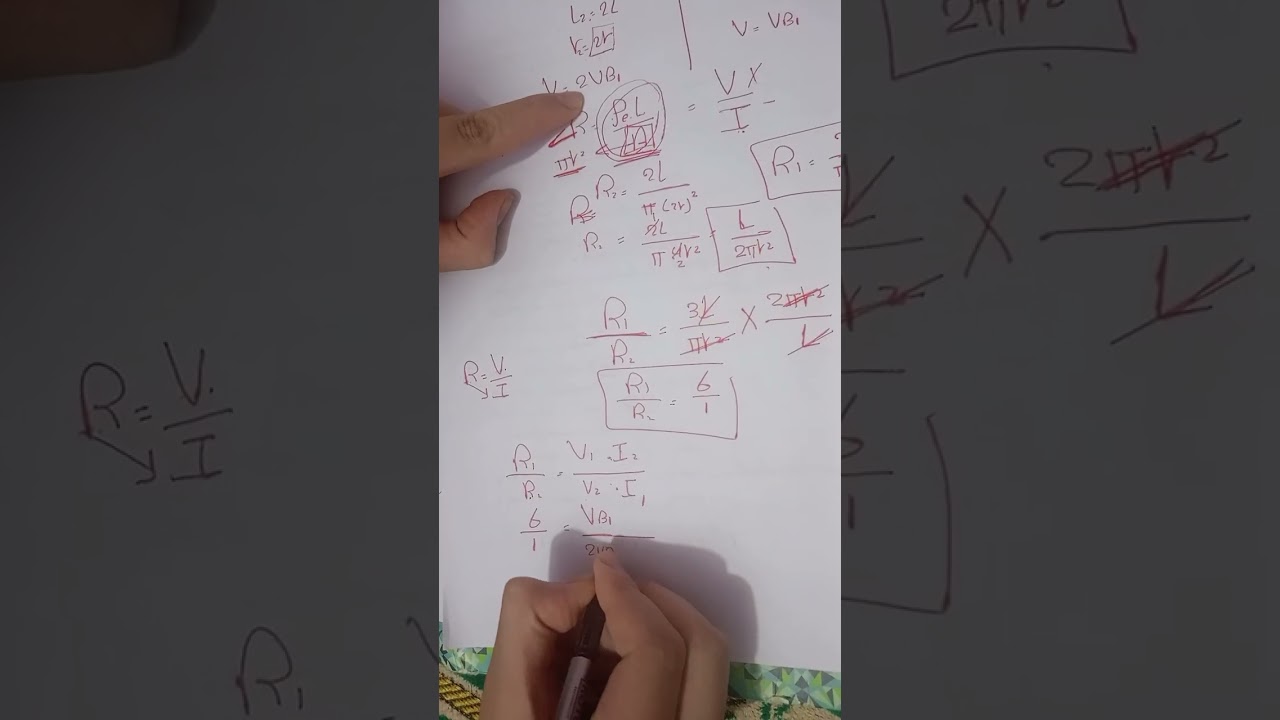 L₂ = 2L
r₂ = 2r
V = VB₁
V = 2VB₁
ρe L = V
I
πr²
R₁ =
R₂ = 2L / π(2r)²
R₂ = 2L / π4r² = L / 2πr²
2
R₁/R₂ = 3L/πr² X 2πr²/L
R = V/I
R₁/R₂ = 6/1
R₁/R₂ = V₁ . I₂ / V₂ . I₁
6/1 = VB₁
2πr²
X 2πr²/L
R = V/I
R₁